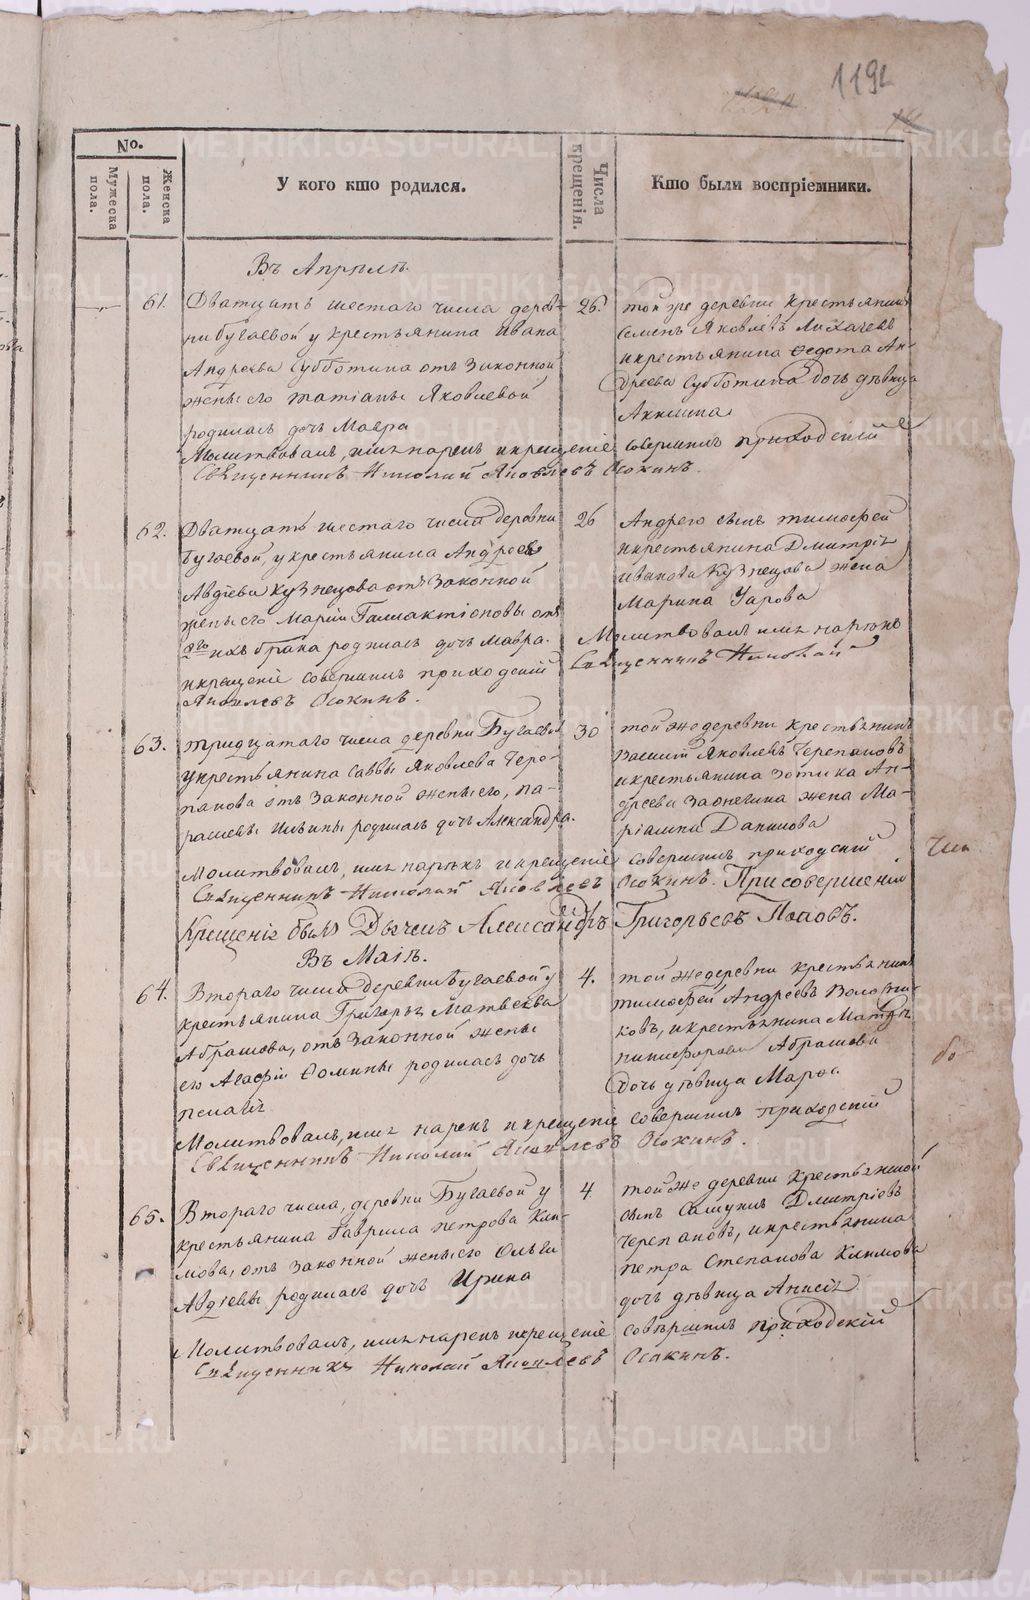 1192
No.
Мужеска пола.
Женска пола.
У кого кто родился.
Числа крещенія.
Кто были воспріемники.
Въ Апрѣлѣ.
61.
Дватцать шестаго числа дерев-
ни бугаевой у крестьянина ивана
Андреева Субботина отъ Законной
жены его татіаны Яковлевой
родилась дочь Мавра
26.
той же деревни крестьянинъ
семенъ Яковлевъ Лихачевъ
и крестьянина Ѳедота Ан-
дреева Субботина дочь дѣвица
Акилина
Молитвовалъ, имя нарекъ и крещеніе совершилъ приходскій
Священникъ Николай Яковлевъ Осокинъ.
62.
Дватцать шестаго числа деревни
бугаевой, у крестьянина Андрея
Авдіева Кузнецова отъ Законной
жены его Маріи Галактіоновы отъ
ихъ брака родилась дочь Мавра.
26
Андрея сынъ тимофей
и крестьянина Дмитрія
иванова Кузнецова жена
Марина Уарова
Молитвовалъ имя нарекъ
и крещеніе совершилъ приходскій
Священникъ Николай
Яковлевъ Осокинъ.
63.
тридцатаго числа деревни Бугаевой
у крестьянина Саввы Яковлева Чере-
панова отъ Законной жены его, па-
раскевы Ильины родилась дочь Александра.
30
той же деревни крестьянинъ
Василій Яковлевъ Черепановъ
и крестьянина Зотика Ан-
дреева Заонегина жена Ма-
ріамна Данилова
Молитвовалъ, имя нарекъ и крещеніе совершилъ приходскій
Священникъ Николай Яковлевъ Осокинъ. При совершеніи
Крещенія былъ Дьячекъ Александръ Григорьевъ Поповъ.
Въ Маіѣ.
64.
Втораго числа деревни Бугаевой у
крестьянина Григорья Матвеева
Абрашева, отъ Законной жены
его Агафіи Ѳомины родилась дочь
пелагія
4.
той же деревни крестьянинъ
тимофей Андреевъ Волож
ковъ, и крестьянина Матвея
никифорова Абрашева
дочь дѣвица Марѳа
Молитвовалъ, имя нарекъ и крещеніе совершилъ приходскій
Священникъ Николай Яковлевъ Осокинъ.
65.
Втораго числа, деревни Бугаевой у
крестьянина Гаврила петрова Кли-
мова, отъ Законной жены его Ольги
Авдіевы родилась дочь Ирина
4
той же деревни крестьянской
сынъ Самуилъ Дмитріевъ
Черепановъ, и крестьянина
петра Степанова Климова
дочь дѣвица Анисія
Молитвовалъ, имя нарекъ и крещеніе совершилъ приходскій
Священникъ Николай Яковлевъ Осокинъ.
METRIKI.GASO-URAL.RU